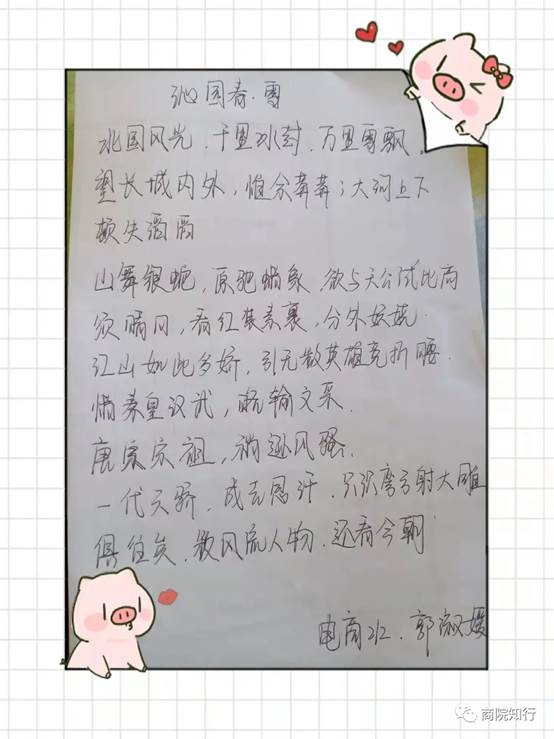 沁园春·雪
北国风光，千里冰封，万里雪飘，
望长城内外，惟余莽莽；大河上下
顿失滔滔
山舞银蛇，原驰蜡象，欲与天公试比高
须晴日，看红装素裹，分外妖娆.
江山如此多娇，引无数英雄竞折腰.
惜秦皇汉武，略输文采.
唐宗宋祖，稍逊风骚.
一代天骄，成吉思汗，只识弯弓射大雕
俱往矣，数风流人物，还看今朝
电商班.郭淑媛
商院知行